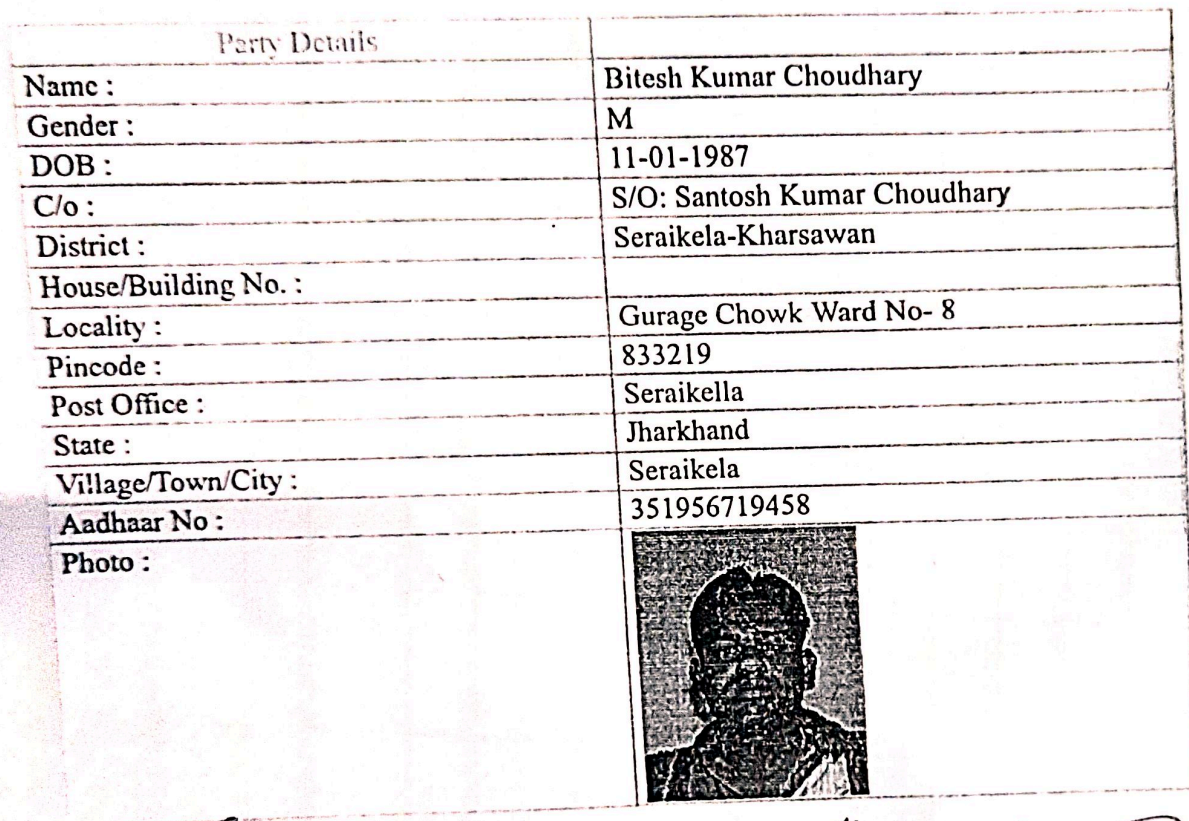 Party Details
Name : Bitesh Kumar Choudhary
Gender : M
DOB : 11-01-1987
C/o : S/O: Santosh Kumar Choudhary
District : Seraikela-Kharsawan
House/Building No. :
Locality : Gurage Chowk Ward No- 8
Pincode : 833219
Post Office : Seraikella
State : Jharkhand
Village/Town/City : Seraikela
Aadhaar No : 351956719458
Photo :